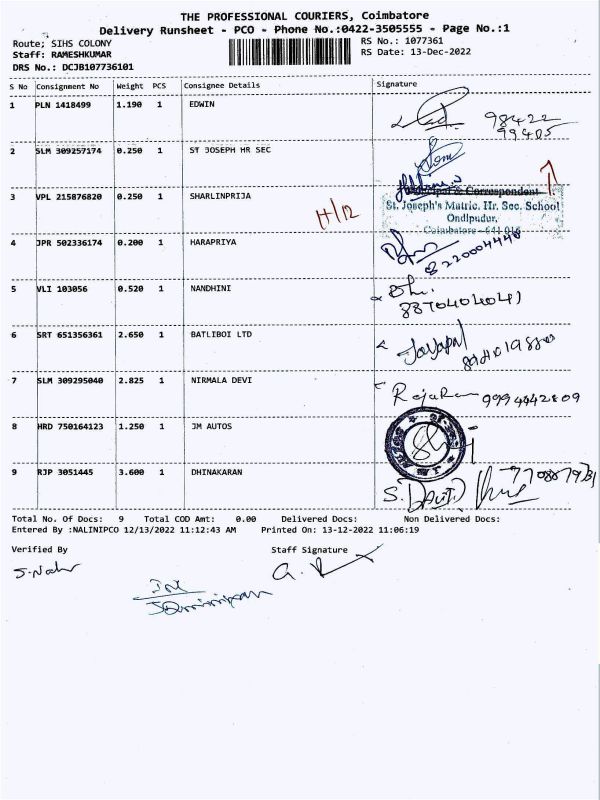 THE PROFESSIONAL COURIERS, Coimbatore
Delivery Runsheet - PCO - Phone No.:0422-3505555 - Page No.:1
Route; SIHS COLONY
RS No.: 1077361
Staff: RAMESHKUMAR
RS Date: 13-Dec-2022
DRS No.: DCJB107736101
S No Consignment No Weight PCS Consignee Details Signature
1 PLN 1418499 1.190 1 EDWIN
98422
99405
2 SLM 309257174 0.250 1 ST JOSEPH HR SEC
3 VPL 215876820 0.250 1 SHARLINPRIJA
Principal & Correspondent
St. Joseph's Matric. Hr. Sec. School
Ondipudur,
Coimbatore - 641 016
4 JPR 502336174 0.200 1 HARAPRIYA
8220004440
5 VLI 103056 0.520 1 NANDHINI
8870402041
6 SRT 651356361 2.650 1 BATLIBOI LTD
Jayapal
7 SLM 309295040 2.825 1 NIRMALA DEVI
RajaRam 9994442809
8 HRD 750164123 1.250 1 JM AUTOS
9 RJP 3051445 3.600 1 DHINAKARAN
S. DAVID
Total No. Of Docs: 9 Total COD Amt: 0.00 Delivered Docs: Non Delivered Docs:
Entered By :NALINIPCO 12/13/2022 11:12:43 AM Printed On: 13-12-2022 11:06:19
Verified By Staff Signature